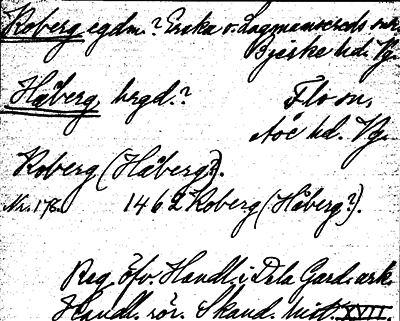 Koberg egdm.? Erska o. Lagmansereds snr
Bjerke hd. Vg.
Håberg, hrgd.? Flo sn,
Åse hd. Vg.
Koberg (Håberg?).
Nr. 178. 1462 Koberg (Håberg?).
Reg. öfv. Handl. i Dela Gard. ark.
Handl. rör. Skand. hist. XVII.